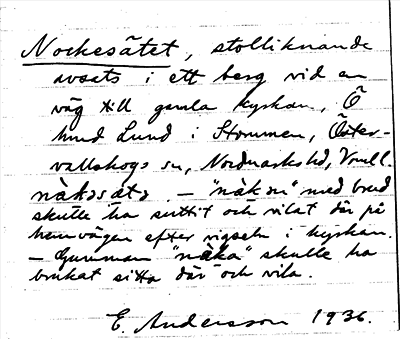 Nockesätet, stolliknande
avsats i ett berg vid en
väg till gamla kyrkan, Ö
hmd Lund i Strommen, Öster-
vallskogs sn, Nordmarks hd, Vrml.
nàkəsǟtə – "näk'n" med brud
skulle ha suttit och vilat där på
hemvägen efter vigseln i kyrkan.
– Gumman "nǟka" skulle ha
brukat sitta där och vila.
E. Andersson 1936.